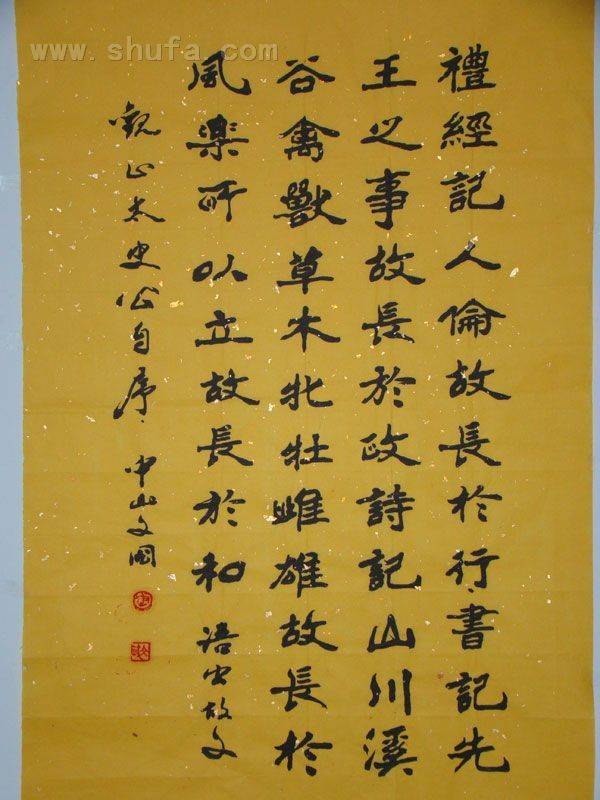 www.shufa.com
禮經記人倫故長於行書記先
王之事故長於政詩記山川溪
谷禽獸草木牝牡雌雄故長於
風樂所以立故長於和
觀止太史公自序
中山文國